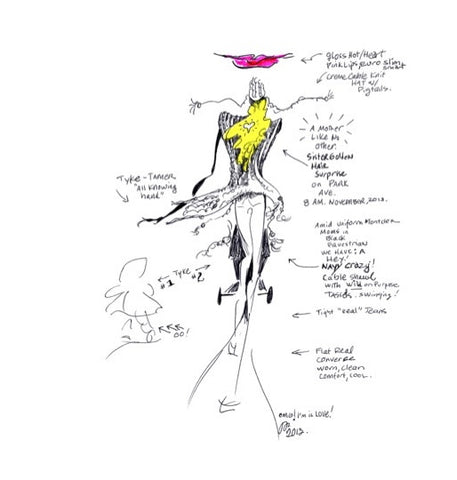 gloss Hot/Heart
Pink Lips, euro slim
Creme Cable Knit
HAT w/
Pigtails.
A Mother
Like No
other.
Hair
Surprise
on Park
Ave.
8 AM. November, 2012.
Tyke-Tamer
"All knowing
hand"
Amid uniform Montcler
Moms in
Black
Pavestrian
we Have: A
Hey!
Navy crazy!
Cable Shawl
with wild on Purpose
Tassels. swinging!
Tyke
#1
#2
OO!
Tight "Real" Jeans
Flat Real
Converse
worn, clean
comfort, cool.
OMG! I'm in Love!
2012.